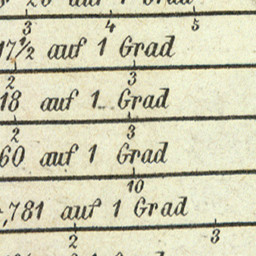 auf 1 Grad
3 4 5
17½ auf 1 Grad
2 3
18 auf 1 Grad
2 3
60 auf 1 Grad
10
,781 auf 1 Grad
2 3